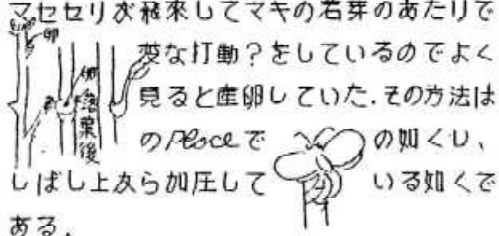 マセセリが飛来してマキの若芽のあたりで
変な打動?をしているのでよく
見ると産卵していた.その方法は
のPlaceで の如くし、
しばし上から加圧して いる如くで
ある.
卵
落葉後